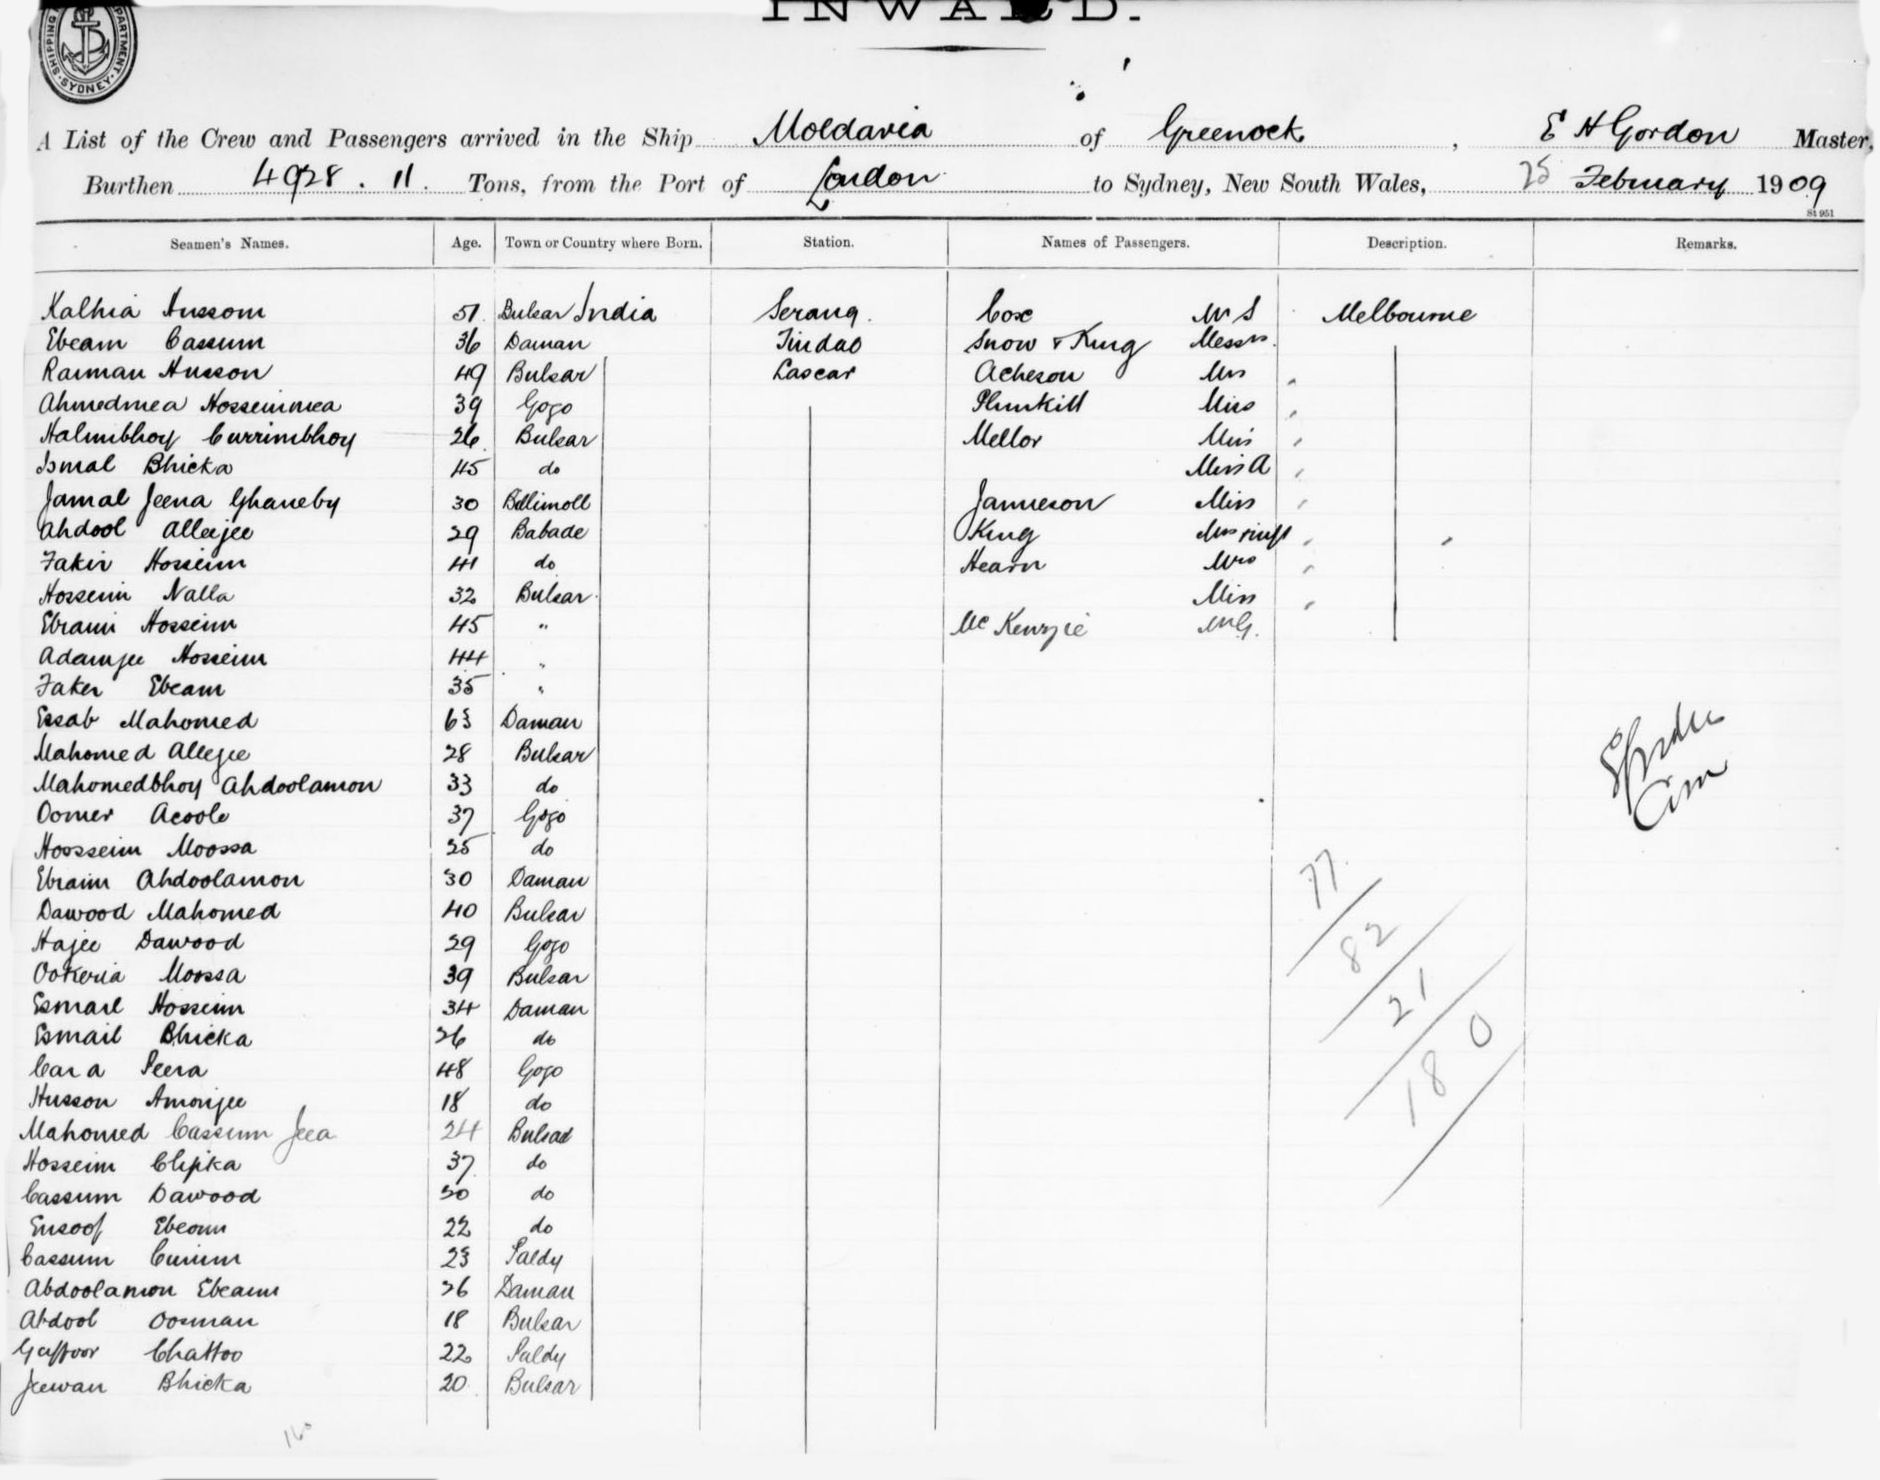 INWARD.
SHIPPING DEPARTMENT SYDNEY
A List of the Crew and Passengers arrived in the Ship Moldavia of Greenock, E H Gordon Master,
Burthen 4928.11. Tons, from the Port of London to Sydney, New South Wales, 25 February 1909
St 951
Seamen's Names. Age. Town or Country where Born. Station. Names of Passengers. Description. Remarks.
Kalhia Hussom 51 Bulsar India Serang. Cox Mr S Melbourne
Ebeam Cassum 36 Daman Tindao Snow & King Messrs.
Raiman Husson 49 Bulsar Lascar Acheson Mrs "
Ahmedmea Hosseinmea 39 Gogo Plunkitt Miss "
Halimbhoy Currimbhoy 26 Bulsar Mellor Mrs "
Ismal Bhicka 45 do Miss A "
Jamal Jeena Ghaneby 30 Billimoll Jamieson Miss "
Abdool Alleejee 29 Babade King Mrs " "
Fakir Hosseim 41 do Hearn Mrs "
Hosseim Nalla 32 Bulsar Miss "
Ebraim Hosseim 45 " McKenzie Mr G.
Adamjee Hosseim 44 "
Faker Ebeam 35 "
Essab Mahomed 63 Daman
Mahomed Allejee 28 Bulsar
Mahomedbhoy Abdoolamon 33 do
Oomer Acoole 37 Gogo
Hossseim Moossa 25 do
Ebraim Abdoolamon 30 Daman
Dawood Mahomed 40 Bulsar
Hajee Dawood 29 Gogo
Ookeria Moossa 39 Bulsar
Esmail Hosseim 34 Daman
Esmail Bhicka 26 do
Cara Peera 48 Gogo
Husson Amorijee 18 do
Mahomed Cassum Jeea 24 Bulsad
Hosseim Clipka 37 do
Cassum Dawood 30 do
Ensoof Ebeam 22 do
Cassum Curium 23 Paldy
Abdoolamon Ebeam 36 Daman
Abdool Oosman 18 Bulsar
Gaffoor Chattoo 22 Paldy
Jeewan Bhicka 20 Bulsar
77
82
21
180
160